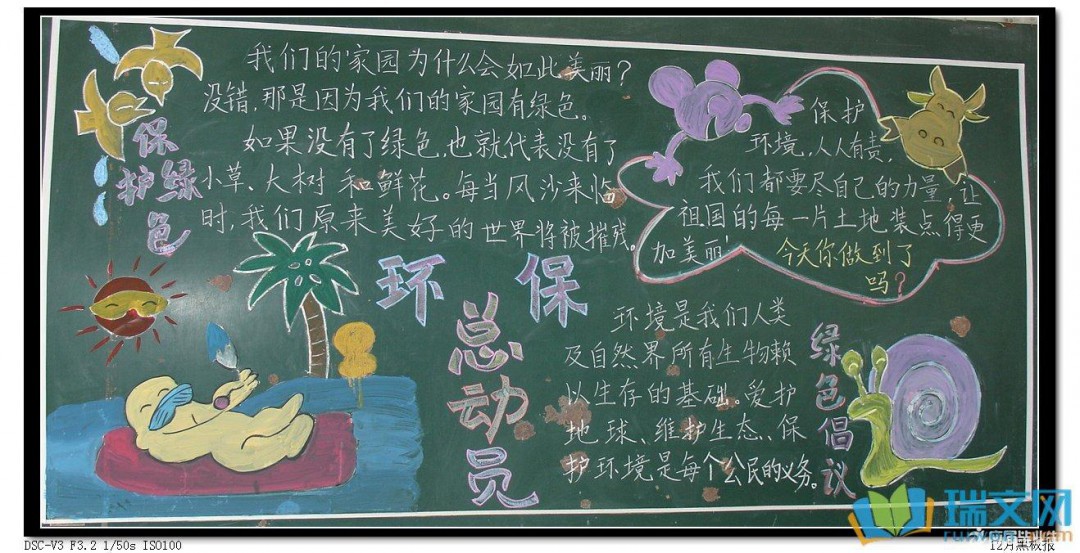 保护绿色
我们的家园为什么会如此美丽？
没错，那是因为我们的家园有绿色。
如果没有了绿色，也就代表没有了
小草、大树和鲜花。每当风沙来临
时，我们原来美好的世界将被摧残。
保护
环境，人人有责，
我们都要尽自己的力量，让
祖国的每一片土地装点得更
加美丽！
今天你做到了
吗？
环保
总动员
环境是我们人类
及自然界所有生物赖
以生存的基础。爱护
地球、维护生态、保
护环境是每个公民的义务。
绿色倡议
瑞文网
DSC-V3 F3.2 1/50s ISO100
12月黑板报